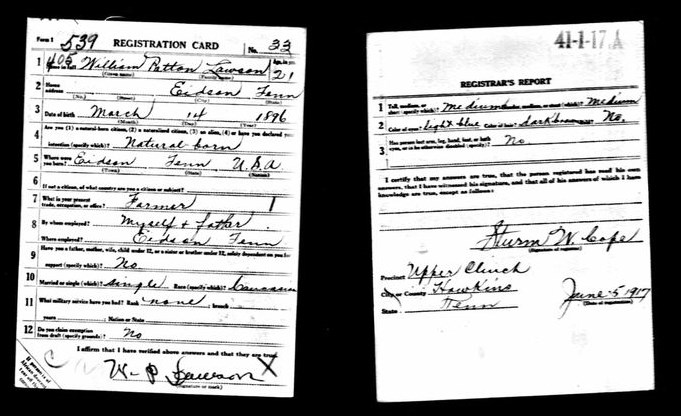 Form 1 539 REGISTRATION CARD No. 33
1 Name in full William Patton Lawson Age, in yrs. 21
(Given name) (Family name)
2 Home address Eidson Tenn
(No.) (Street) (City) (State)
3 Date of birth March 14 1896
(Month) (Day) (Year)
4 Are you (1) a natural-born citizen, (2) a naturalized citizen, (3) an alien, (4) or have you declared your
intention (specify which)? Natural born
5 Where were you born? Eidson Tenn U.S.A.
(Town) (State) (Nation)
6 If not a citizen, of what country are you a citizen or subject?
7 What is your present trade, occupation, or office? Farmer 1
8 By whom employed? Myself + father
Where employed? Eidson Tenn
9 Have you a father, mother, wife, child under 12, or a sister or brother under 12, solely dependent on you for
support (specify which)? No
10 Married or single (which)? single Race (specify which)? Caucasian
11 What military service have you had? Rank none ; branch
years ; Nation or State
12 Do you claim exemption from draft (specify grounds)? No
I affirm that I have verified above answers and that they are true.
W. P. Lawson X
(Signature or mark)
41-1-17 A
REGISTRAR'S REPORT
1 Tall, medium, or short (specify which)? Medium Slender, medium, or stout (which)? Medium
2 Color of eyes? Light blue Color of hair? Dark brown No.
3 Has person lost arm, leg, hand, foot, or both eyes, or is he otherwise disabled (specify)? No
I certify that my answers are true, that the person registered has read his own
answers, that I have witnessed his signature, and that all of his answers of which I have
knowledge are true, except as follows:
W. Cope
(Signature of registrar)
Precinct Upper Clinch
City or County Hawkins
State Tenn
June 5 1917
(Date of registration)